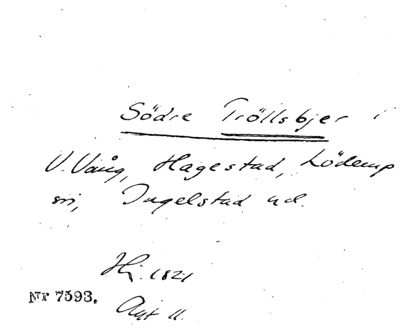 Södre Tröllsbjer i
V. Vång, Hagestad, Löderup
sn, Ingelstad hd.
Hj. 1821
Nr 7593.
Akt 11.